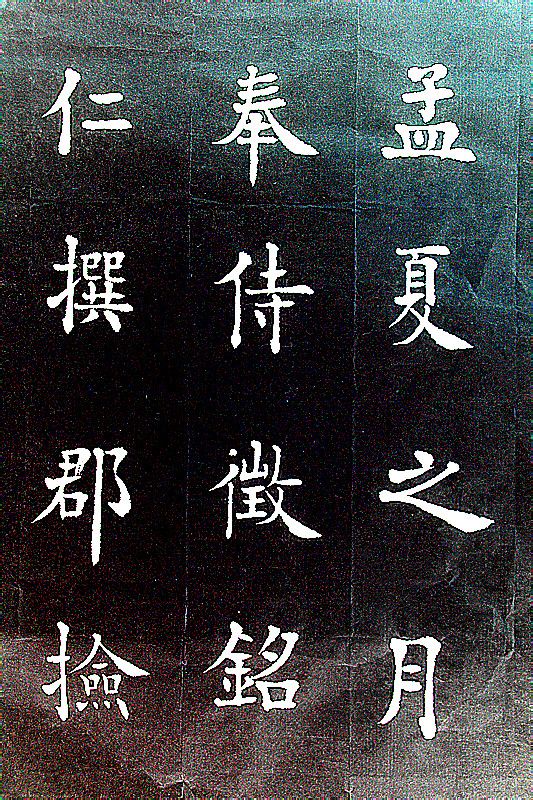 孟夏之月
奉侍徵銘
仁撰郡撿